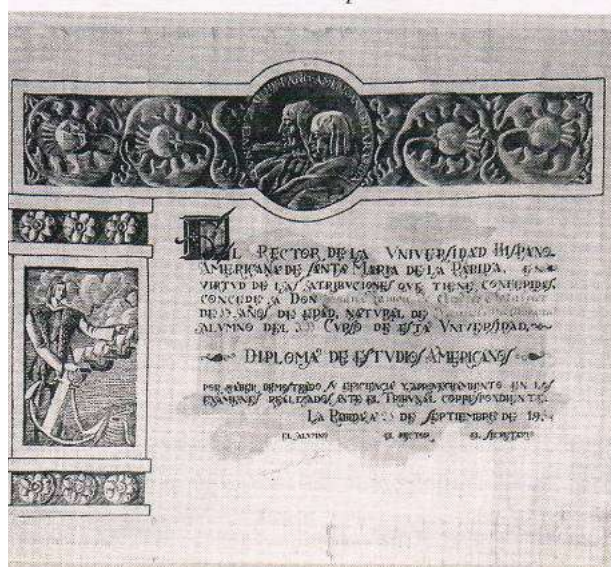 EL RECTOR DE LA VNIVERSIDAD HISPANO-
AMERICANA DE SANTA MARIA DE LA RABIDA, EN
VIRTVD DE LAS ATRIBVCIONES QVE TIENE CONFERIDAS,
CONCEDE A DON
DE AÑOS DE EDAD, NATVRAL DE
ALVMNO DEL CVRSO DE ESTA VNIVERSIDAD,
DIPLOMA DE ESTVDIOS AMERICANOS
POR HABER DEMOSTRADO SV EFICIENCIA Y APROVECHAMIENTO EN LOS
EXAMENES REALIZADOS ANTE EL TRIBVNAL CORRESPONDIENTE.
LA RABIDA DE SEPTIEMBRE DE 19
EL ALVMNO EL RECTOR EL SECRETARIO